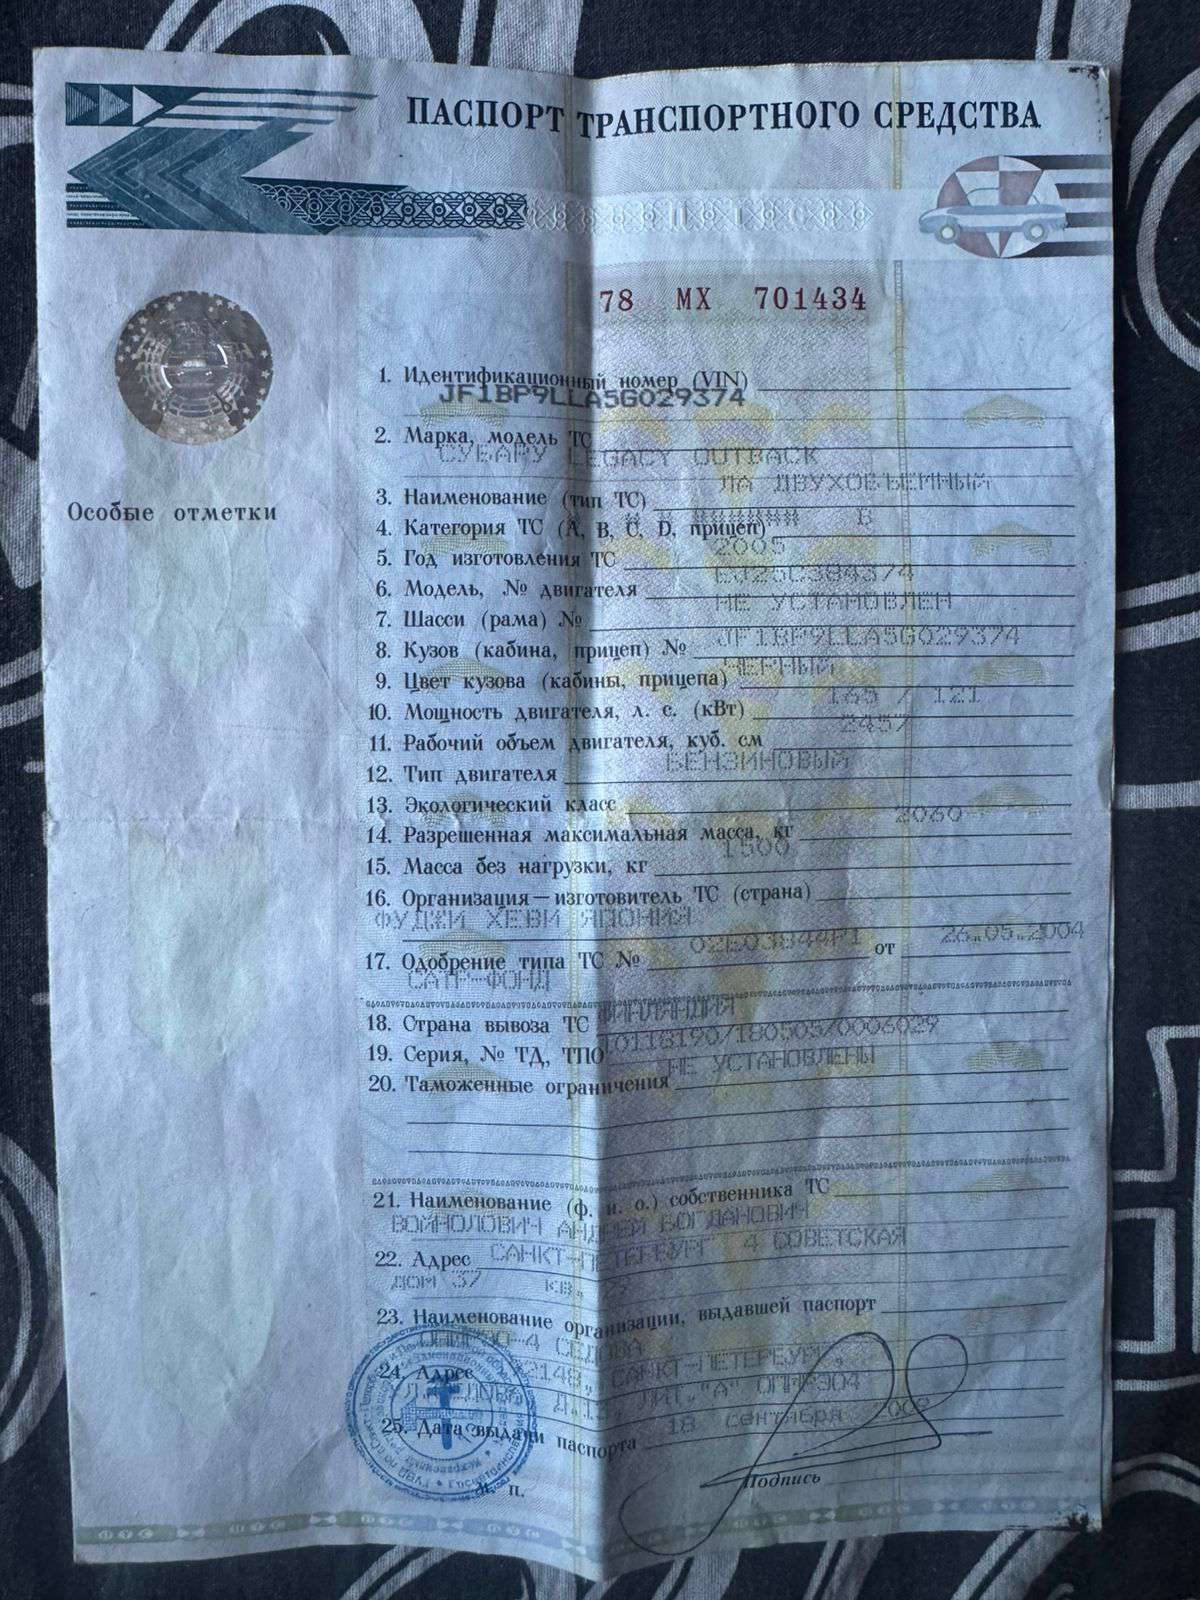 ПАСПОРТ ТРАНСПОРТНОГО СРЕДСТВА
78 МХ 701434
Особые отметки
1. Идентификационный номер (VIN)
JF1BP9LLA5G029374
2. Марка, модель ТС
СУБАРУ LEGACY OUTBACK
3. Наименование (тип ТС) ЛА ДВУХОБЪЕМНЫЙ
4. Категория ТС (A, B, C, D, прицеп) B
5. Год изготовления ТС 2005
6. Модель, № двигателя EJ25C384374
7. Шасси (рама) № НЕ УСТАНОВЛЕН
8. Кузов (кабина, прицеп) № JF1BP9LLA5G029374
9. Цвет кузова (кабины, прицепа) ЧЕРНЫЙ
10. Мощность двигателя, л. с. (кВт) 165 / 121
11. Рабочий объем двигателя, куб. см 2457
12. Тип двигателя БЕНЗИНОВЫЙ
13. Экологический класс
14. Разрешенная максимальная масса, кг 2060
15. Масса без нагрузки, кг 1500
16. Организация—изготовитель ТС (страна)
ФУДЖИ ХЕВИ ЯПОНИЯ
17. Одобрение типа ТС № 02E03844P1 от 26.05.2004
САТР-ФОНД
18. Страна вывоза ТС ФИНЛЯНДИЯ
19. Серия, № ТД, ТПО 10118190/180505/0006029
20. Таможенные ограничения НЕ УСТАНОВЛЕНЫ
21. Наименование (ф. и. о.) собственника ТС
ВОЙНОЛОВИЧ АНДРЕЙ БОГДАНОВИЧ
22. Адрес САНКТ-ПЕТЕРБУРГ 4 СОВЕТСКАЯ
ДОМ 37 КВ.
23. Наименование организации, выдавшей паспорт
24. Адрес САНКТ-ПЕТЕРБУРГ,
25. Дата выдачи паспорта 18 сентября
Подпись
М. п.